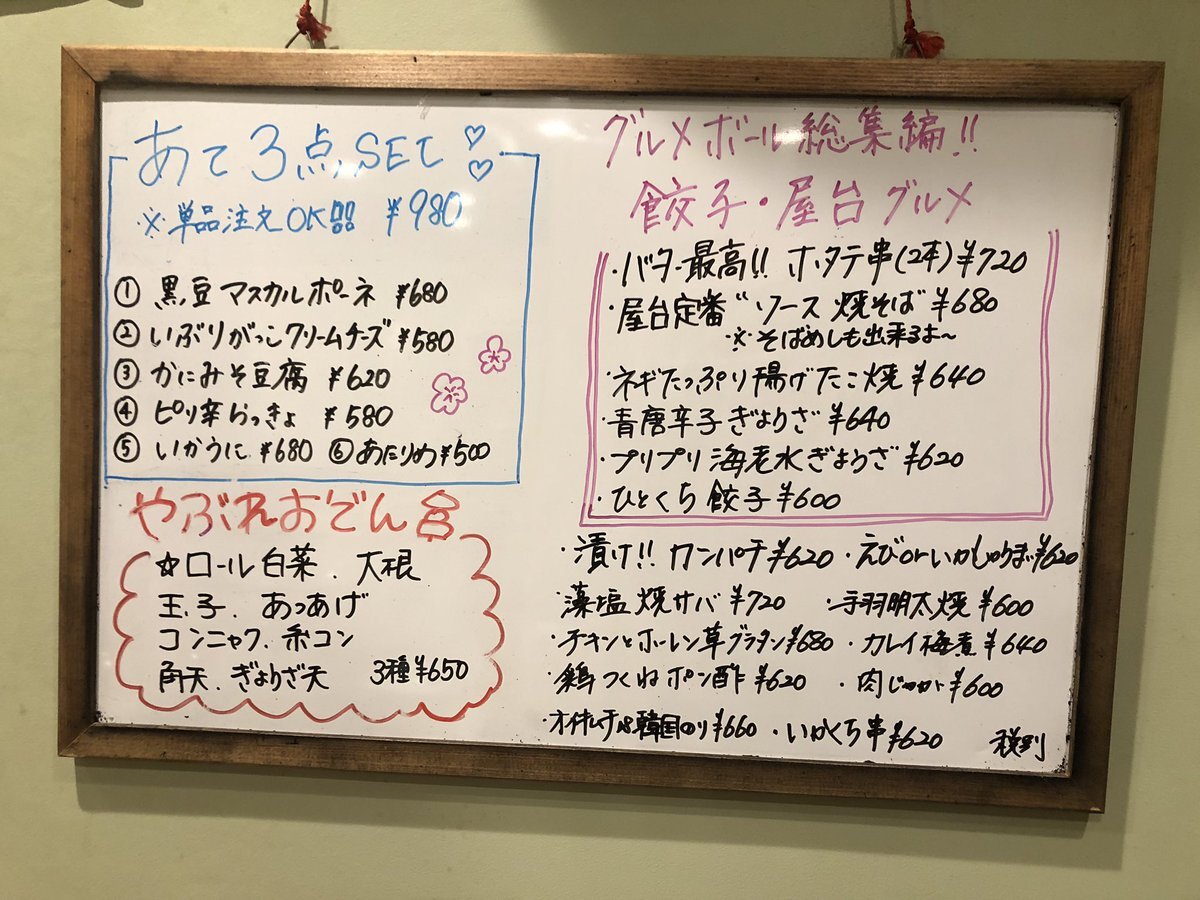 あて3点SET
※単品注文OK ¥980
① 黒豆マスカルポーネ ¥680
② いぶりがっこクリームチーズ ¥580
③ かにみそ豆腐 ¥620
④ ピリ辛らっきょ ¥580
⑤ いかうに ¥680 ⑥あたりめ¥500
やぶれおでん
☆ロール白菜．大根
玉子．あつあげ
コンニャク．糸コン
角天．ぎょうざ天 3種¥650
グルメボール総集編!!
餃子・屋台グルメ
・バター最高!! ホタテ串(2本)¥720
・屋台定番"ソース焼そば ¥680
※そばめしも出来るよ〜
・ネギたっぷり揚げたこ焼 ¥640
・青唐辛子ぎょうざ ¥640
・プリプリ海老水ぎょうざ ¥620
・ひとくち餃子 ¥600
・漬け!! カンパチ ¥620 ・えびorいかしゅうまい¥620
・藻塩焼サバ ¥720 ・手羽明太焼 ¥600
・チキンとホーレン草グラタン¥680 ・カレイ梅煮 ¥640
・鶏つくねポン酢 ¥620 ・肉じゃが ¥600
・オイキムチ&韓国のり ¥660 ・いかくち串 ¥620 税別